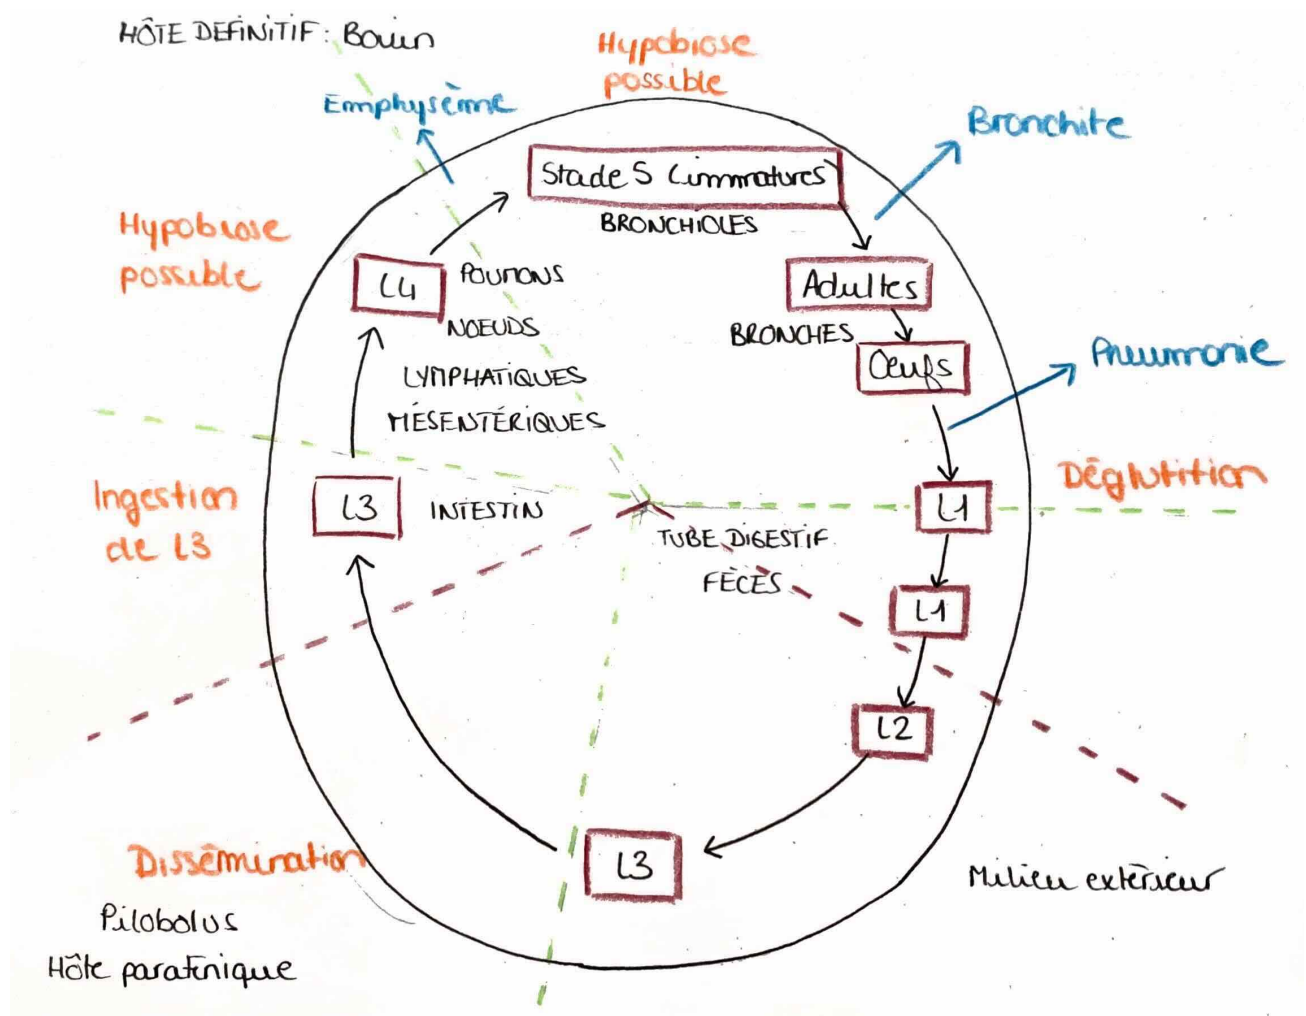 HÔTE DEFINITIF : Bovin
Hypobiose
possible
Emphysème
Bronchite
Stade 5 (immatures)
BRONCHIOLES
Hypobiose
possible
L4
POUMONS
NOEUDS
LYMPHATIQUES
MÉSENTÉRIQUES
Adultes
BRONCHES
Œufs
Pneumonie
Déglutition
Ingestion
de L3
L3
INTESTIN
L1
TUBE DIGESTIF
FÈCES
L1
L2
L3
Dissémination
Pilobolus
Hôte paraténique
Milieu extérieur